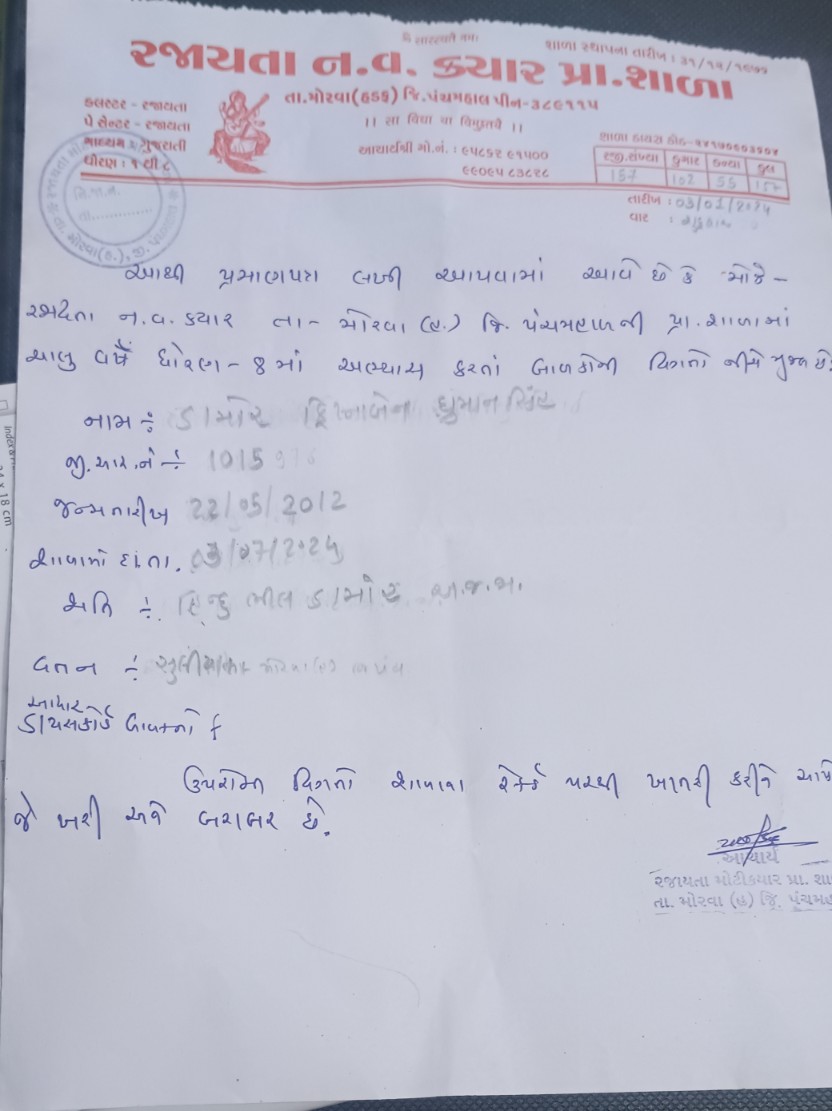 શાળા સ્થાપના તારીખ : ૩૧/૧૨/૧૯૭૫
રજાયતા ન.વ. ક્યાર પ્રા.શાળા
તા.મોરવા(હડફ) જિ.પંચમહાલ પીન-૩૮૯૧૧૫
કલસ્ટર - રજાયતા
પે સેન્ટર - રજાયતા
માધ્યમ : ગુજરાતી
ધોરણ : ૧ થી ૮
।। सा विद्या या विमुक्तये ।।
આચાર્યશ્રી મો.નં. : ૯૫૮૬૨ ૯૧૫૦૦
૯૯૦૯૫ ૮૩૮૨૮
શાળા ડાયસ કોડ-
રજી.સંખ્યા કુમાર કન્યા કુલ
157 102 55 157
તારીખ : 03/01/2024
વાર :
આથી પ્રમાણપત્ર લખી આપવામાં આવે છે કે મોજે -
રજાયતા ન.વ. ક્યાર તા- મોરવા (હ.) જિ. પંચમહાલની પ્રા. શાળામાં
ચાલુ વર્ષે ધોરણ - 8 માં અભ્યાસ કરતાં બાળકોની વિગતો નીચે મુજબ છે.
નામ ÷ ડામોર ઘુમાનસિંહ
જી.આર.નં ÷ 1015
જન્મતારીખ 22/05/2012
શાળામાં દા.તા. 03/07/2024
જાતિ ÷ હિન્દુ ભીલ ડામોર અ.જ.જા.
વતન ÷
આધાર
ડાયસકોર્ડ બાબતનો
ઉપરોક્ત વિગતો શાળાના રેકર્ડ પરથી ખાતરી કરીને
જે ખરી અને બરાબર છે.
આચાર્ય
રજાયતા મોટીક્યાર પ્રા. શા
તા. મોરવા (હ) જિ. પંચમહ